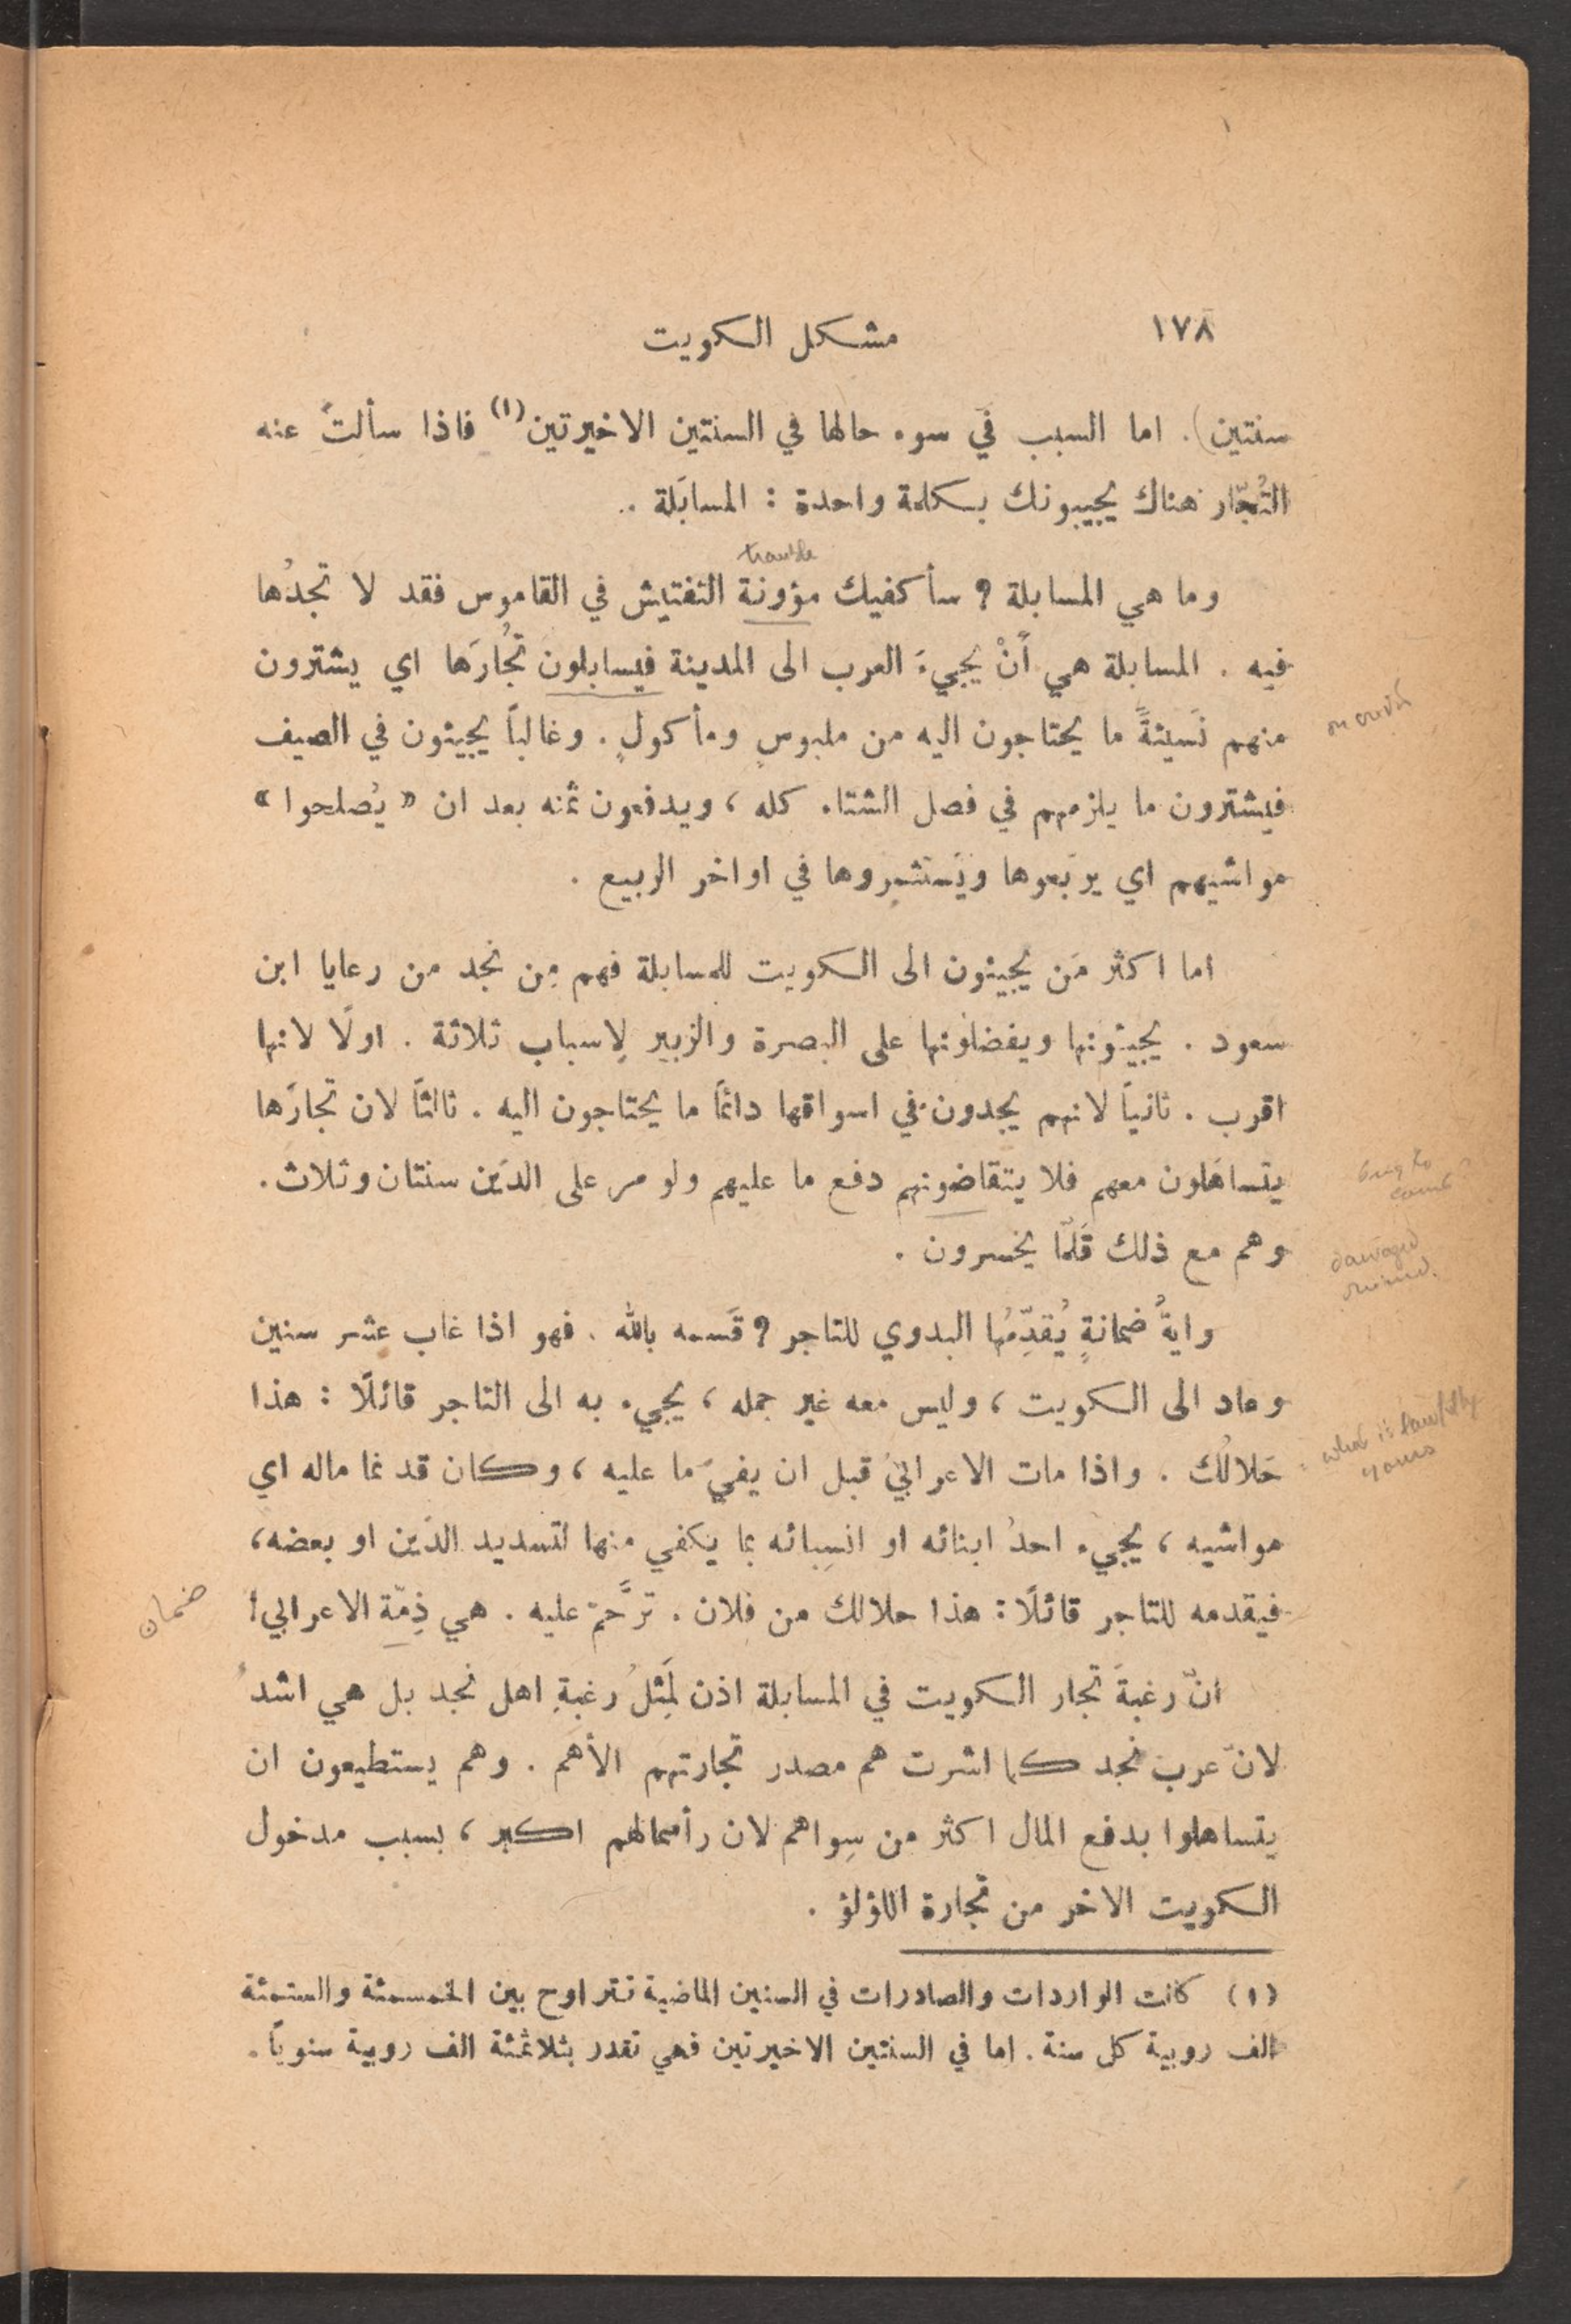 ١٧٨ مشكل الكويت
سنتين). اما السبب في سوء حالها في السنتين الاخيرتين(١) فاذا سألتَ عنه
التُجّار هناك يجيبونك بكلمة واحدة : المسابَلة .
trouble
وما هي المسابلة ? سأكفيك مؤونة التفتيش في القاموس فقد لا تجدُها
فيه . المسابلة هي أَنْ يجيءَ العرب الى المدينة فيسابلون تُجارَها اي يشترون
منهم نَسيئةً ما يحتاجون اليه من ملبوسٍ ومأكولٍ . وغالباً يجيئون في الصيف
on credit
فيشترون ما يلزمهم في فصل الشتاء كله ، ويدفعون ثمنه بعد ان « يُصلحوا »
مواشيهم اي يربّعوها ويَستثمِروها في اواخر الربيع .
اما اكثر مَن يجيئون الى الكويت للمسابلة فهم مِن نجد من رعايا ابن
سعود . يجيئونها ويفضلونها على البصرة والزبير لِاسباب ثلاثة . اولًا لانها
اقرب . ثانياً لانهم يجدون في اسواقها دائمًا ما يحتاجون اليه . ثالثاً لان تجارَها
يتساهَلون معهم فلا يتقاضونهم دفع ما عليهم ولو مر على الدَين سنتان وثلاث .
وهم مع ذلك قَلّما يخسرون .
damaged
ruined.
وايةُ ضمانةٍ يُقدِّمُها البدوي للتاجر ? قَسمه بالله . فهو اذا غاب عشر سنين
وعاد الى الكويت ، وليس معه غير جمله ، يجيء به الى التاجر قائلًا : هذا
حَلالُك . واذا مات الاعرابيّ قبل ان يفيَ ما عليه ، وكان قد نما ماله اي
= what is lawfully
yours
مواشيه ، يجيء احدُ ابنائه او انسِبائه بما يكفي منها لتسديد الدَين او بعضه ،
فيقدمه للتاجر قائلًا : هذا حلالك من فلان . ترَّحمْ عليه . هي ذِمّة الاعرابي !
ضمان
انّ رغبةَ تجار الكويت في المسابلة اذن لَمِثلُ رغبةِ اهل نجد بل هي اشدُ
لانّ عرب نجد كما اشرت هم مصدر تجارتهم الأهمّ . وهم يستطيعون ان
يتساهلوا بدفع المال اكثر من سِواهم لان رأسمالهم اكبر ، بسبب مدخول
الكويت الاخر من تجارة اللؤلؤ .
(١) كانت الواردات والصادرات في السنين الماضية تتراوح بين الخمسمئة والستمئة
الف روبية كل سنة . اما في السنتين الاخيرتين فهي تقدر بثلاثمئة الف روبية سنوياً .